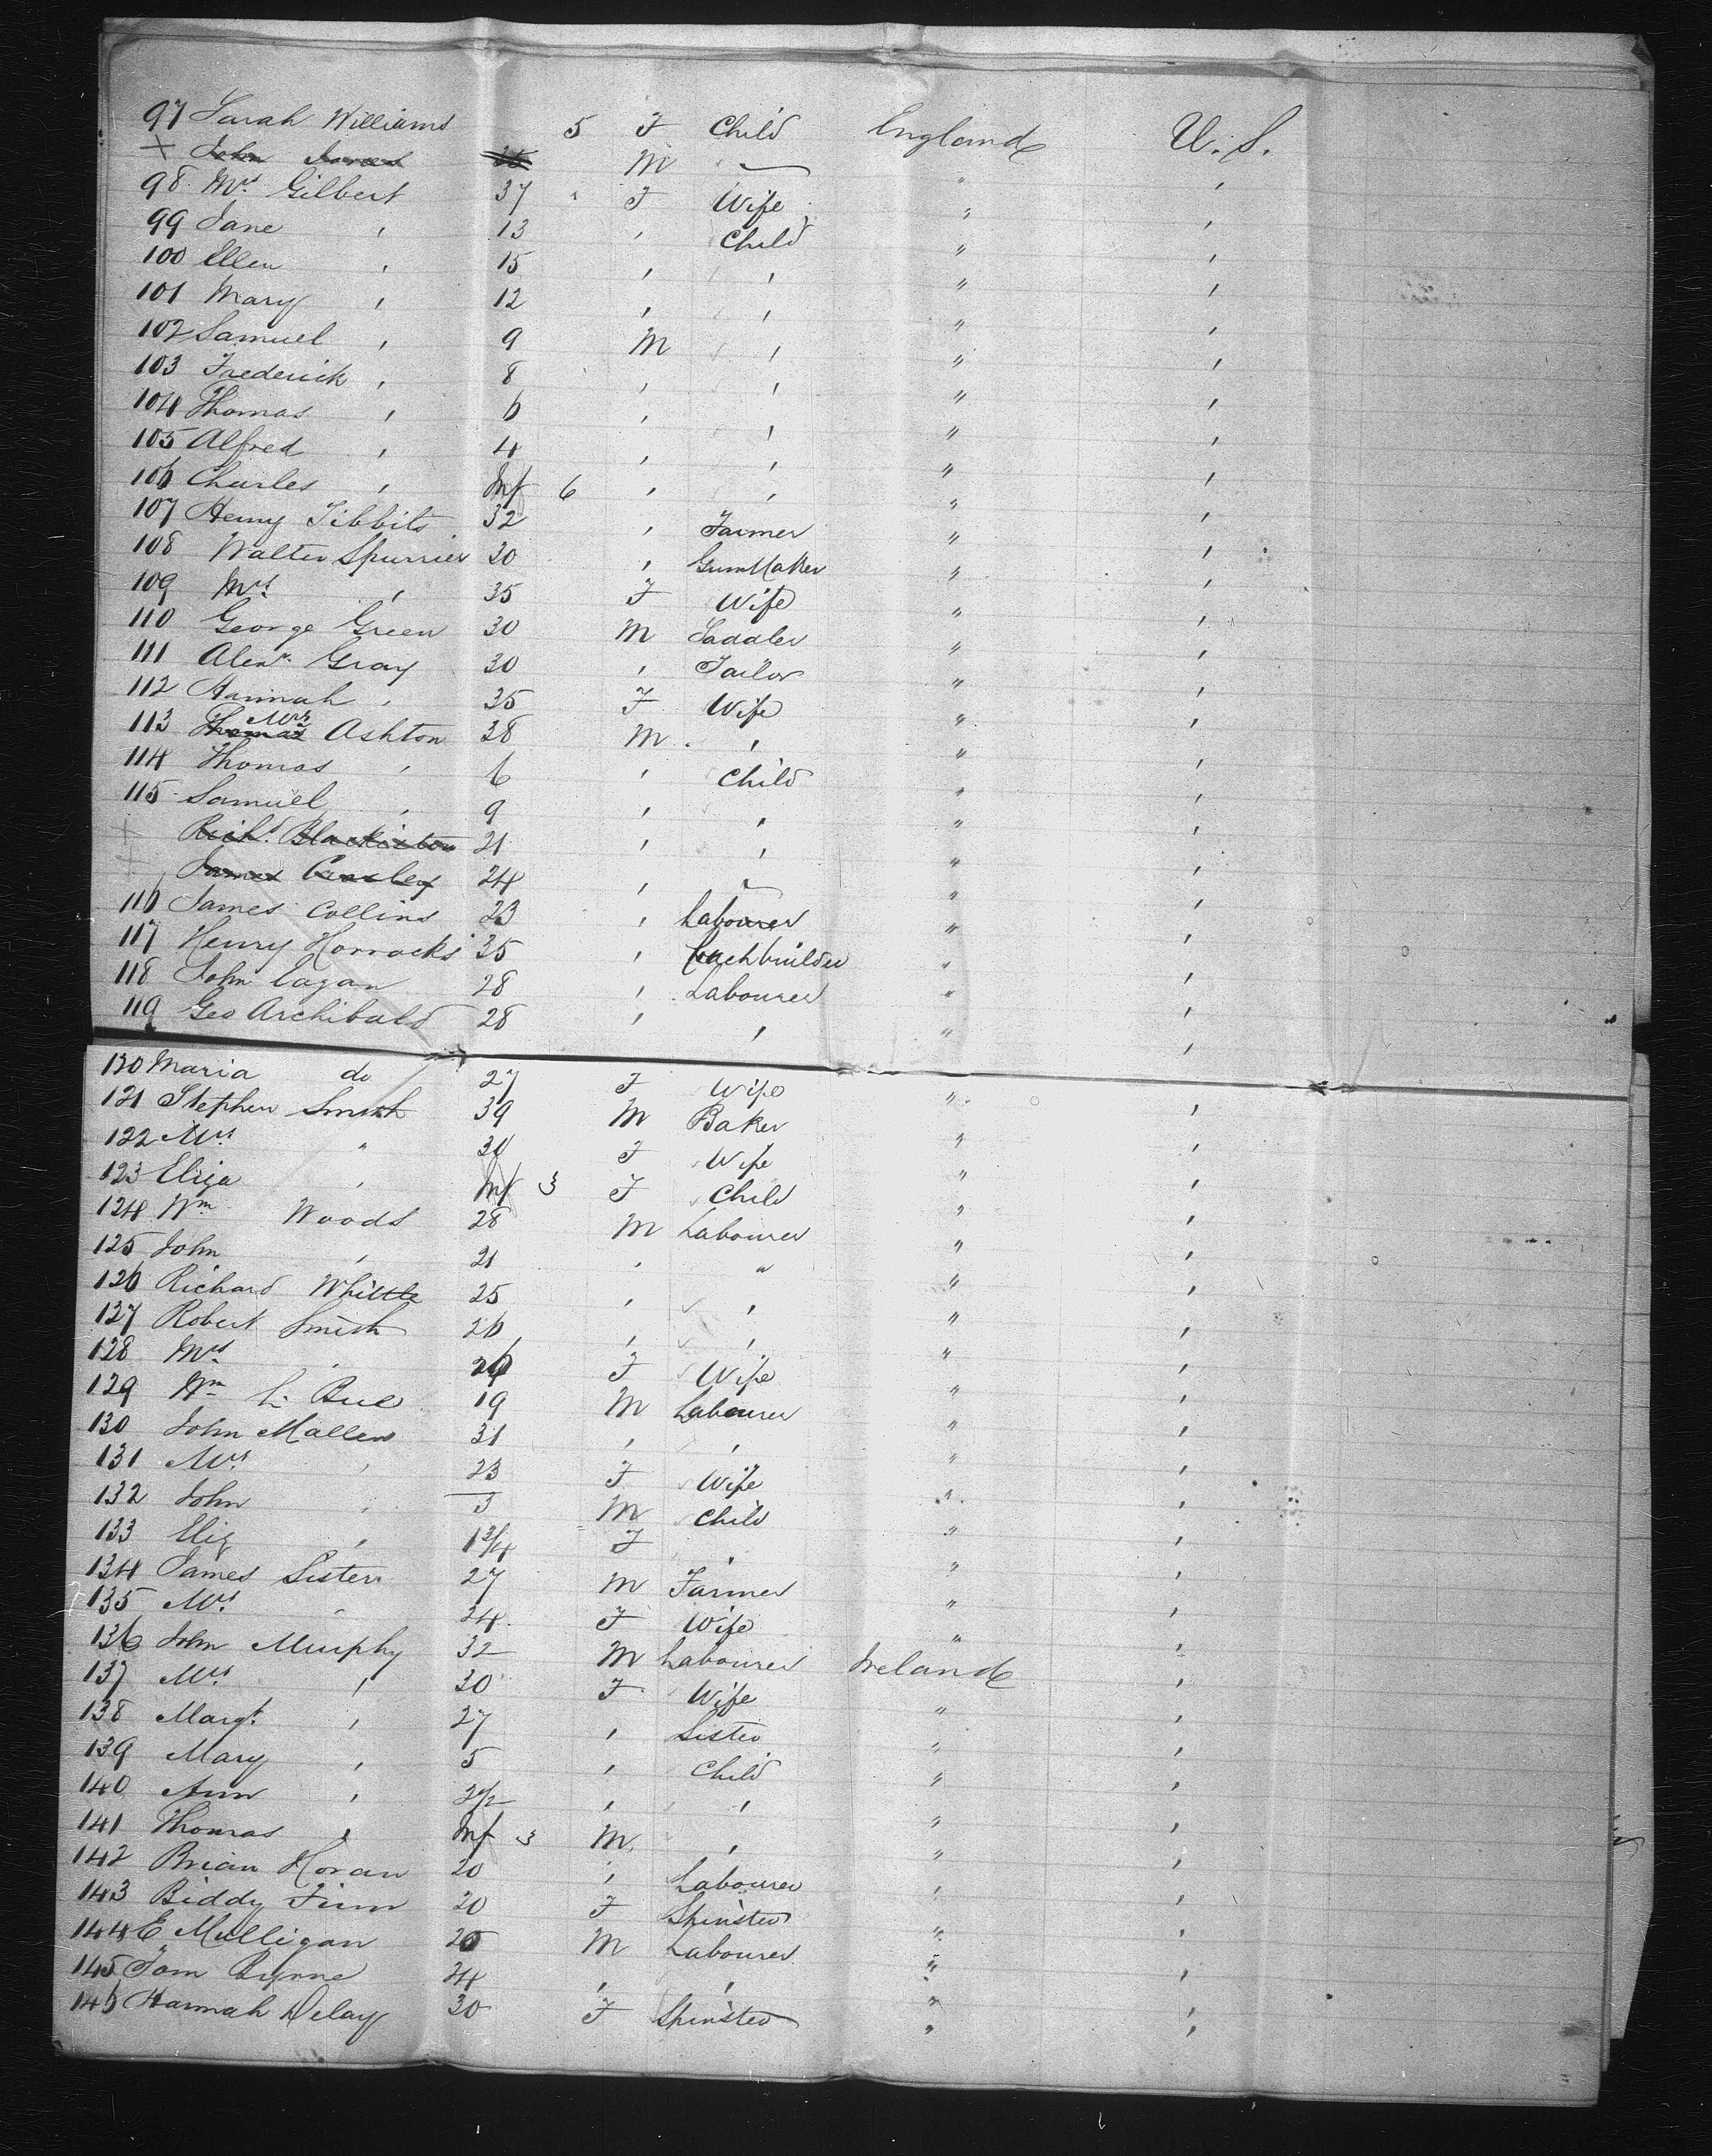 97 Sarah Williams 5 F Child England U. S.
+ John Jones M " '
98 Mrs Gilbert 37 F Wife " '
99 Jane ' 13 ' Child " '
100 Ellen ' 15 ' ' " '
101 Mary ' 12 ' ' " '
102 Samuel ' 9 M ' " '
103 Frederick ' 8 ' ' " '
104 Thomas ' 6 ' ' " '
105 Alfred ' 4 ' ' " '
106 Charles ' Inf 6 ' ' " '
107 Henry Tibbits 32 ' Farmer " '
108 Walter Spurrier 30 ' GunMaker " '
109 Mrs ' 35 F Wife " '
110 George Green 30 M Saddler " '
111 Alexr. Gray 30 ' Tailor " '
112 Hannah ' 35 F Wife " '
113 Thomas Mrs Ashton 38 M ' " '
114 Thomas ' 6 ' Child " '
115 Samuel ' 9 ' ' " '
+ Richd. Blackiston 21 ' ' " '
+ James 24 ' " '
116 James Collins 23 ' Labourer " '
117 Henry Horrocks 35 ' Coachbuilder " '
118 John Eagan 28 ' Labourer " '
119 Geo Archibald 28 ' ' " '
120 Maria do 27 F Wife " '
121 Stephen Smith 39 M Baker " '
122 Mrs " 30 F Wife " '
123 Eliza ' Inf 3 F Child " '
124 Wm Woods 28 M Labourer " '
125 John ' 21 ' " " '
126 Richard Whittle 25 ' ' " '
127 Robert Smith 26 ' ' " '
128 Mrs ' F Wife " '
129 Wm L. Bue 19 M Labourer " '
130 John Mallen 31 ' ' " '
131 Mrs ' 23 F Wife " '
132 John ' 3 M Child " '
133 Eliz ' 1 3/4 F ' " '
134 James Lister 27 M Farmer " '
135 Mrs " 24 F Wife " '
136 John Murphy 32 M Labourer Ireland '
137 Mrs ' 30 F Wife " '
138 Margt. ' 27 ' Sister " '
139 Mary ' 5 ' Child " '
140 Ann ' 2 1/2 ' ' " '
141 Thomas ' Inf 3 M ' " '
142 Brian Horan 20 ' Labourer " '
143 Biddy Finn 20 F Spinster " '
144 E Mulligan 20 M Labourer " '
145 Tom Byrne 24 ' ' " '
146 Hannah Delay 30 F Spinster " '